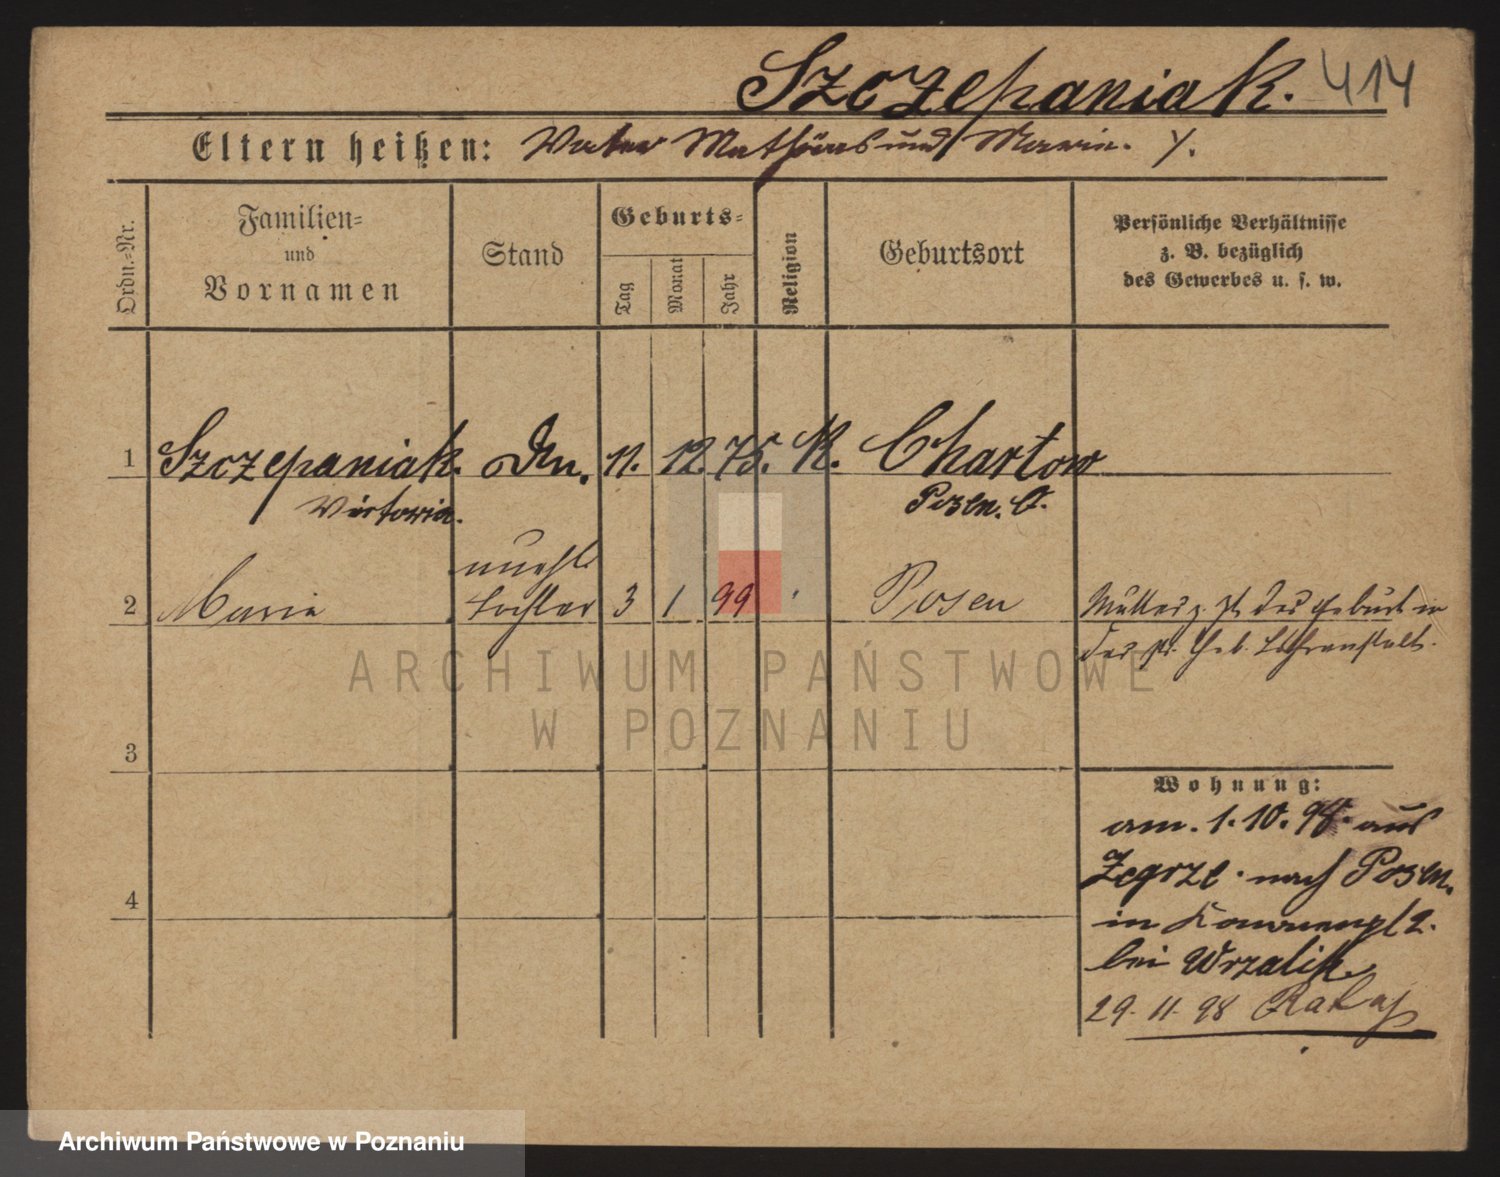 Szczepaniak. 414
Eltern heißen: Vater Mathias und Marie
Ordn.-Nr.
Familien-
und
Vornamen
Stand
Geburts-
Tag
Monat
Jahr
Religion
Geburtsort
Persönliche Verhältnisse
z. B. bezüglich
des Gewerbes u. s. w.
1 Szczepaniak. 11. 12. 75. K. Chartow
Victoria. Posen. O.
unehl.
2 Marie Tochter 3 1 99 Posen Mutter z. Zt. der Geburt in
der Heb. Lehranstalt.
3
4
Wohnung:
am. 1. 10. 98. aus
Zegrze. nach Posen.
in 2.
bei Wrzalik.
29. 11. 98 Rataj
ARCHIWUM PAŃSTWOWE
W POZNANIU
Archiwum Państwowe w Poznaniu